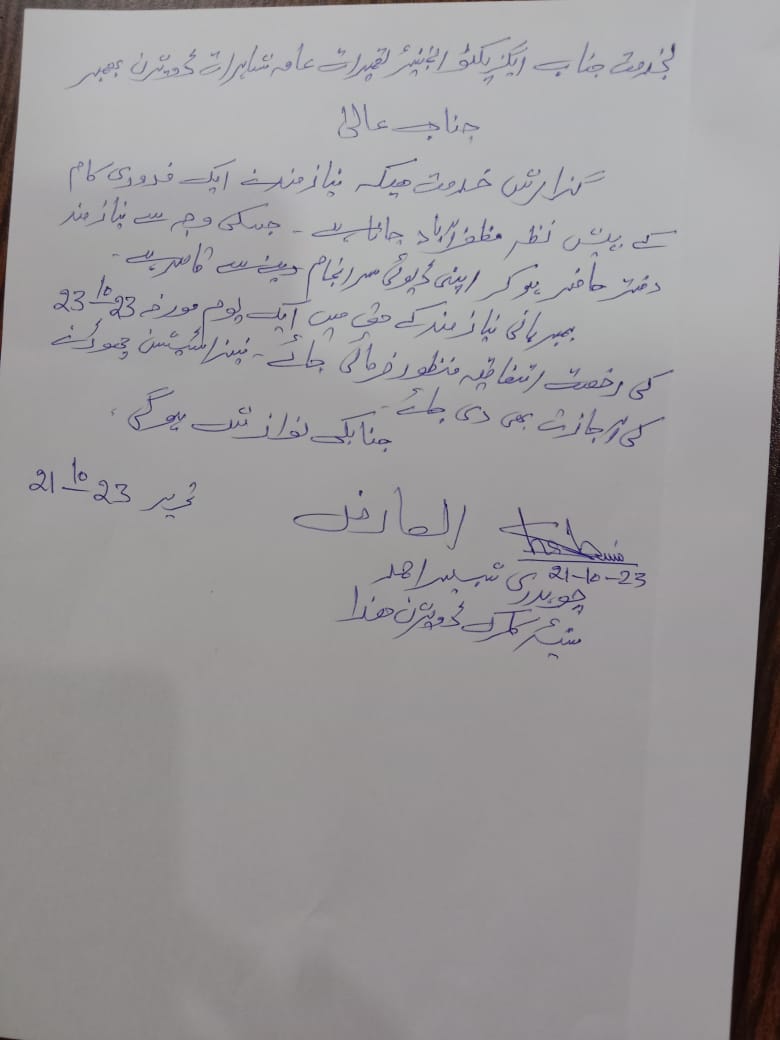 بخدمت جناب ایگزیکٹو انجینئر تعمیرات عامہ شاہرات ڈویژن بھمبر
جناب عالی!
گزارش خدمت ہیکہ نیازمندنے ایک ضروری کام
کے پیش نظر مظفرآباد جانا ہے۔ جسکی وجہ سے نیازمند
دفتر حاضر ہو کر اپنی ڈیوٹی سرانجام دینے سے قاصر ہے۔
بمہربانی نیازمند کے حق میں ایک یوم مورخہ 23-10-23
کی رخصت اتفاقیہ منظور فرمائی جائے۔ نیز اسٹیشن چھوڑنے
کی اجازت بھی دی جائے۔
جنابکی نوازش ہوگی۔
تحریر 21-10-23
العارض
21-10-23
چوہدری شبیر احمد
سینئر کلرک ڈویژن ھذا